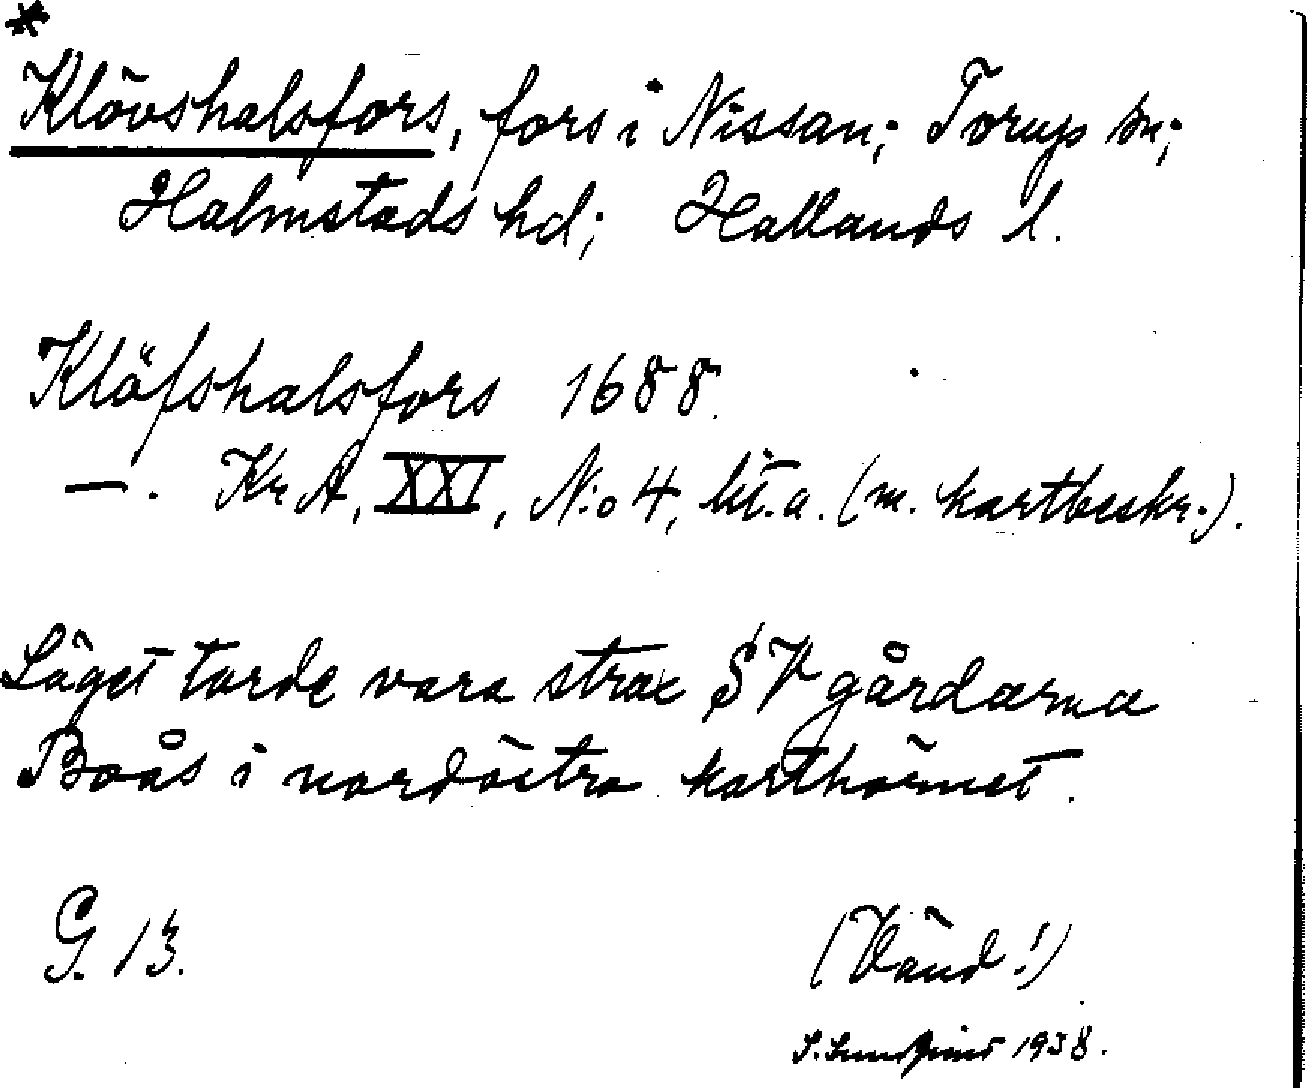 *
Klövshalsfors, fors i Nissan; Torup sn;
Halmstads hd; Hallands l.
Klöfshalsfors 1688.
—. Kr A, XXI, N:o 4, lit. a. (m. kartbeskr.).
Läget torde vara strax SV gårdarna
Boås i nordöstra karthörnet.
G. 13.
(Vänd!)
S. 1938.